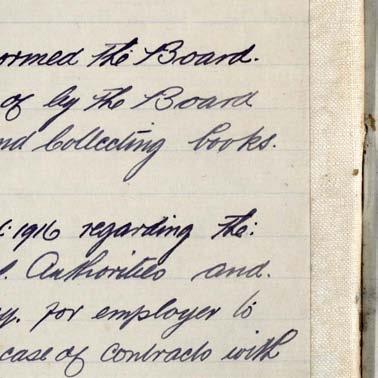 ormed the Board.
of by the Board
nd Collecting books.
: 1916 regarding the:
l. Authorities and.
y. for employer to
case of contracts with